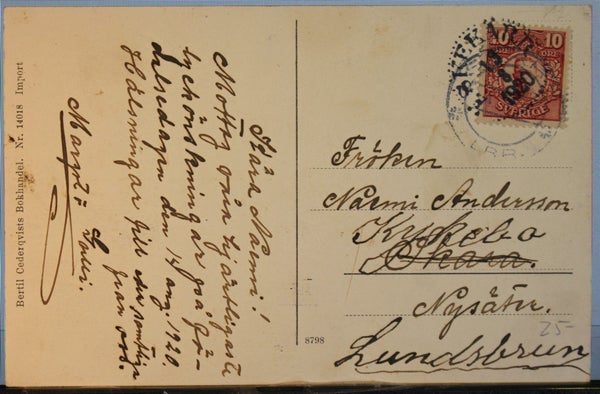 Kära Naemi!
Mottag våra hjärtligaste
lyckönskningar på fö-
delsedagen den 14 aug. 1920.
Hälsningar till eder samtliga
från oss.
Margit
Fröken
Naemi Andersson
Kyrkebo
Skara.
Nysäter.
Lundsbrunn
25-
10 10
SVERIGE
1920
LBR
8798
Bertil Cederqvists Bokhandel. Nr. 14018 Import